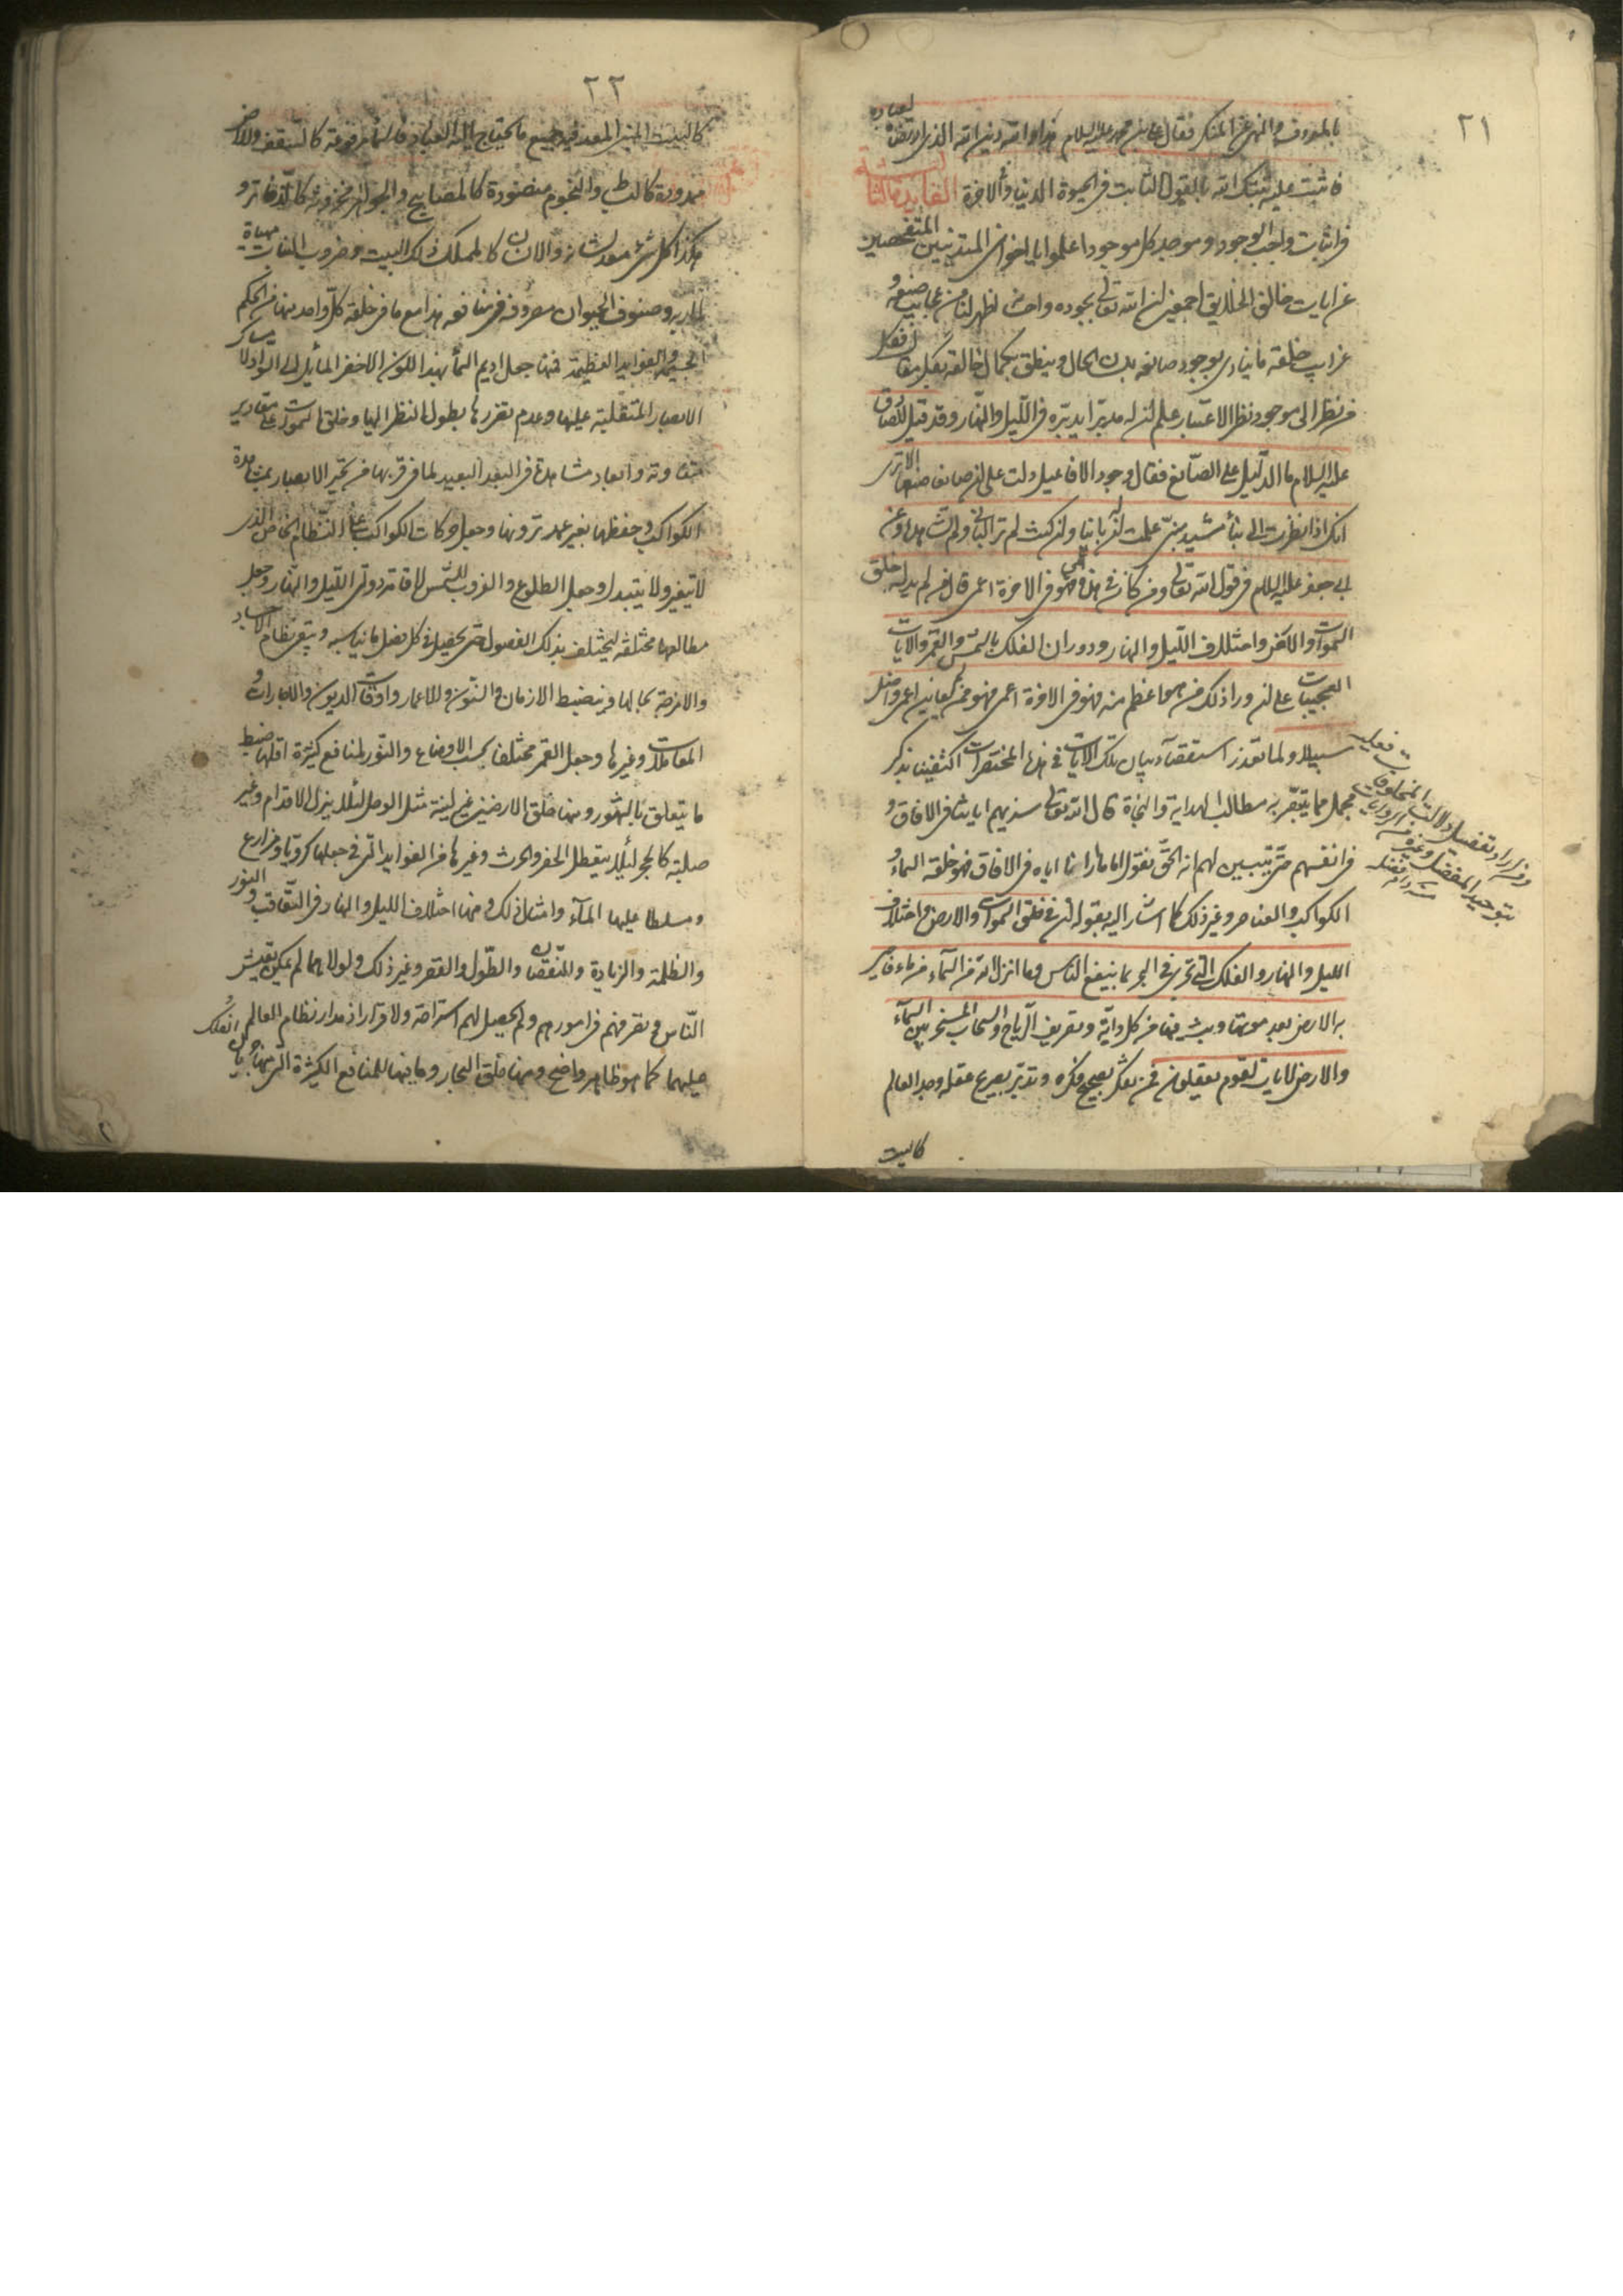 ٢١
بالمعروف والنهى عن المنكر فقال على بن محمد عليه السلام هذا والله دين الله الذى ارتضاه لعباده
فاثبت عليه ثبتك الله بالقول الثابت فى الحيوة الدنيا والاخرة الفايدة الثالثة
فى اثبات واجب الوجود وموجد كل موجود اعلموا يا اخوانى المتدينين المتفحصين
عن ايات خالق الخلايق اجمعين ان الله تعالى بجوده واحسانه اظهر لنا من عجايب صنعه و
غرايب خلقه ما ينادى بوجود صانعه بلسان الحال وينطق بكمال خالقه بكل مقال فكل
من نظر الى موجود نظر الاعتبار علم ان له مدبرا يدبره فى الليل والنهار وقد قيل للصادق
عليه السلام ما الدليل على الصانع فقال وجود الافاعيل دلت على ان صانعا صنعها الا ترى
انك اذا نظرت الى بناء مشيد مبنى علمت ان له بانيا وان كنت لم تر البانى ولم تشاهده وعن
ابى جعفر عليه السلام فى قول الله تعالى ومن كان فى هذه اعمى فهو فى الاخرة اعمى قال من لم يدله خلق
السموات والارض واختلاف الليل والنهار ودوران الفلك بالشمس والقمر والايات
العجيبات على ان وراء ذلك من هو اعظم منه فهو فى الاخرة اعمى فهو عمن لم يعاين اعمى واضل
سبيلا ولما تعذر استقصاء بيان تلك الايات فى هذه المختصرات اكتفينا بذكر
مجمل مما يتبصر به مطالب الهداية والنجاة قال الله تعالى سنريهم اياتنا فى الافاق و
فى انفسهم حتى يتبين لهم انه الحق فنقول اما ما ارانا اياه فى الافاق فهو خلقة السماء و
الكواكب والعناصر وغير ذلك كما اشار اليه بقوله ان فى خلق السموات والارض واختلاف
الليل والنهار والفلك التى تجرى فى البحر بما ينفع الناس وما انزل الله من السماء من ماء فاحيى
به الارض بعد موتها وبث فيها من كل دابة وتصريف الرياح والسحاب المسخر بين السماء
والارض لايات لقوم يعقلون فمن تفكر بصحيح فكره وتدبر بصريح عقله وجد العالم
كالبيت
ومن اراد تفصيل دلالات المخلوقات فعليه
بتوحيد المفضل وغيره من الروايات
٢٢
كالبيت المبنى المعد فيه جميع ما يحتاج اليه العباد فالسماء مرفوعة كالسقف والارض
ممدودة كالبساط والنجوم منضودة كالمصابيح والجواهر مخزونة كالذخاير و
هكذا كل شئ معد لشانه والانسان كالمملك ذلك البيت وضروب النبات مهياة
لماربه وصنوف الحيوان مصروفة فى منافعه هذا مع ما فى خلقة كل واحد منها من الحكم
الجسيمة والفوايد العظيمة فمنها جعل اديم السماء بهذا اللون الاخضر المائل الى السواد
الابصار المتقلبة عليها وعدم تضررها بطول النظر اليها وخلق السموات على مقادير
متفاوتة وابعاد مشاهدة فى البعد البعيد لما فى قربها من تحير الابصار بمشاهدة
الكواكب وحفظها بغير عمد ترونها وجعل حركات الكواكب على النظام الخاص الذى
لا يتغير ولا يتبدل وجعل الطلوع والغروب للشمس لاقامة دولتى الليل والنهار وجعل
مطالعها مختلفة ليختلف بذلك الفصول حتى يحصل فى كل فصل ما يناسبه ويتم نظام الاجساد
والامزجة بحالها وينضبط الازمان والسنون والاعمار واوقات الديون والاجارات و
المعاملات وغيرها وجعل القمر مختلفا بحسب الاوضاع والنور لمنافع كثيرة اقلها ضبط
ما يتعلق بالشهور ومنها خلق الارضين غير لينة مثل الوحل لئلا يزل الاقدام وغير
صلبة كالحجر لئلا يتعطل الحفر والحرث وغيرها من الفوايد التى فى جعلها كروية ومزارع
ومسلطا عليها الماء وامثال ذلك ومنها اختلاف الليل والنهار فى التعاقب والنور
والظلمة والزيادة والنقصان والطول والقصر وغير ذلك ولولاهما لم يمكن تعيش
الناس فى تصرفهم فى امورهم ولم يحصل لهم استراحة ولا قرار اذ مدار نظام العالم
عليهما كما هو ظاهر واضح ومنها خلق البحار وما فيها للمنافع الكثيرة التى منها